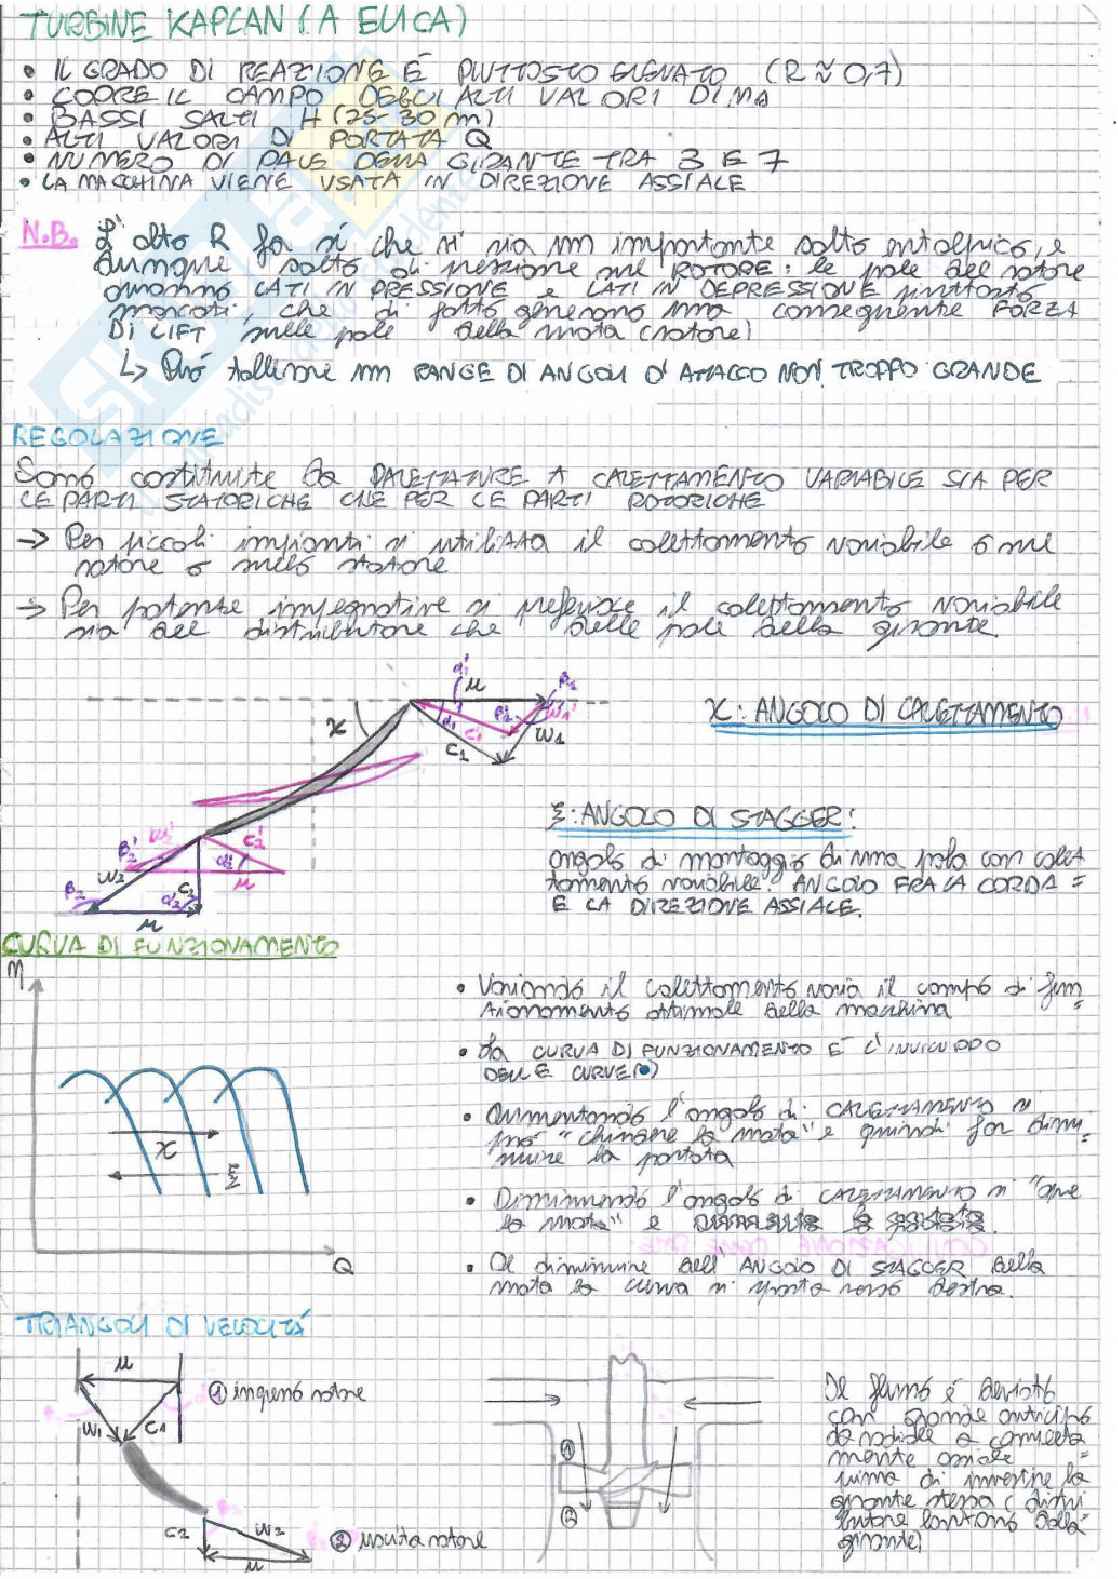 TURBINE KAPLAN (A ELICA)
• IL GRADO DI REAZIONE È PIUTTOSTO ELEVATO (R ≈ 0,7)
• COPRE IL CAMPO DEGLI ALTI VALORI DI
• BASSI SALTI H (25-30 m)
• ALTI VALORI DI PORTATA Q
• NUMERO DI PALE DELLA GIRANTE TRA 3 E 7
• LA MACCHINA VIENE USATA IN DIREZIONE ASSIALE
N.B. L'alto R fa sì che vi sia un importante salto entalpico, e
dunque salto di pressione nel ROTORE: le pale del rotore
avranno LATI IN PRESSIONE e LATI IN DEPRESSIONE piuttosto
marcati, che di fatto generano una conseguente FORZA
DI LIFT sulle pale della ruota (rotore)
↳ Può tollerare un RANGE DI ANGOLI D'ATTACCO NON TROPPO GRANDE
REGOLAZIONE
Sono costituite da PALETTATURE A CALETTAMENTO VARIABILE SIA PER
LE PARTI STATORICHE CHE PER LE PARTI ROTORICHE
→ Per piccoli impianti si utilizza il calettamento variabile o sul
rotore o sullo statore
→ Per potenze impegnative si preferisce il calettamento variabile
sia del distributore che delle pale della girante.
α1' u β1
χ α1 c1' β1' w1'
c1 w1
χ: ANGOLO DI CALETTAMENTO
ξ: ANGOLO DI STAGGER:
angolo di montaggio di una pala con calet
tamento variabile. ANGOLO FRA LA CORDA =
E LA DIREZIONE ASSIALE.
β2' w2' c2'
w2 α2' u
β2 c2 α2
u
CURVA DI FUNZIONAMENTO
η
χ
ξ
Q
• Variando il calettamento varia il campo di fun=
zionamento ottimale della macchina
• La CURVA DI FUNZIONAMENTO È L'INVILUPPO
DELLE CURVE (•)
• Aumentando l'angolo di CALETTAMENTO si
può "chiudere la ruota" e quindi far dimi=
nuire la portata
• Diminuendo l'angolo di CALETTAMENTO si "apre
la ruota" e
• Al diminuire dell'ANGOLO DI STAGGER della
ruota la curva si sposta verso destra.
TRIANGOLI DI VELOCITÀ
u
w1 c1
① ingresso rotore
c2 w2
u
② uscita rotore
①
②
Il flusso è deviato
con grande anticipo
da radiale a completa
mente assiale =
prima di investire la
girante stessa (distri
butore lontano dalla
girante)